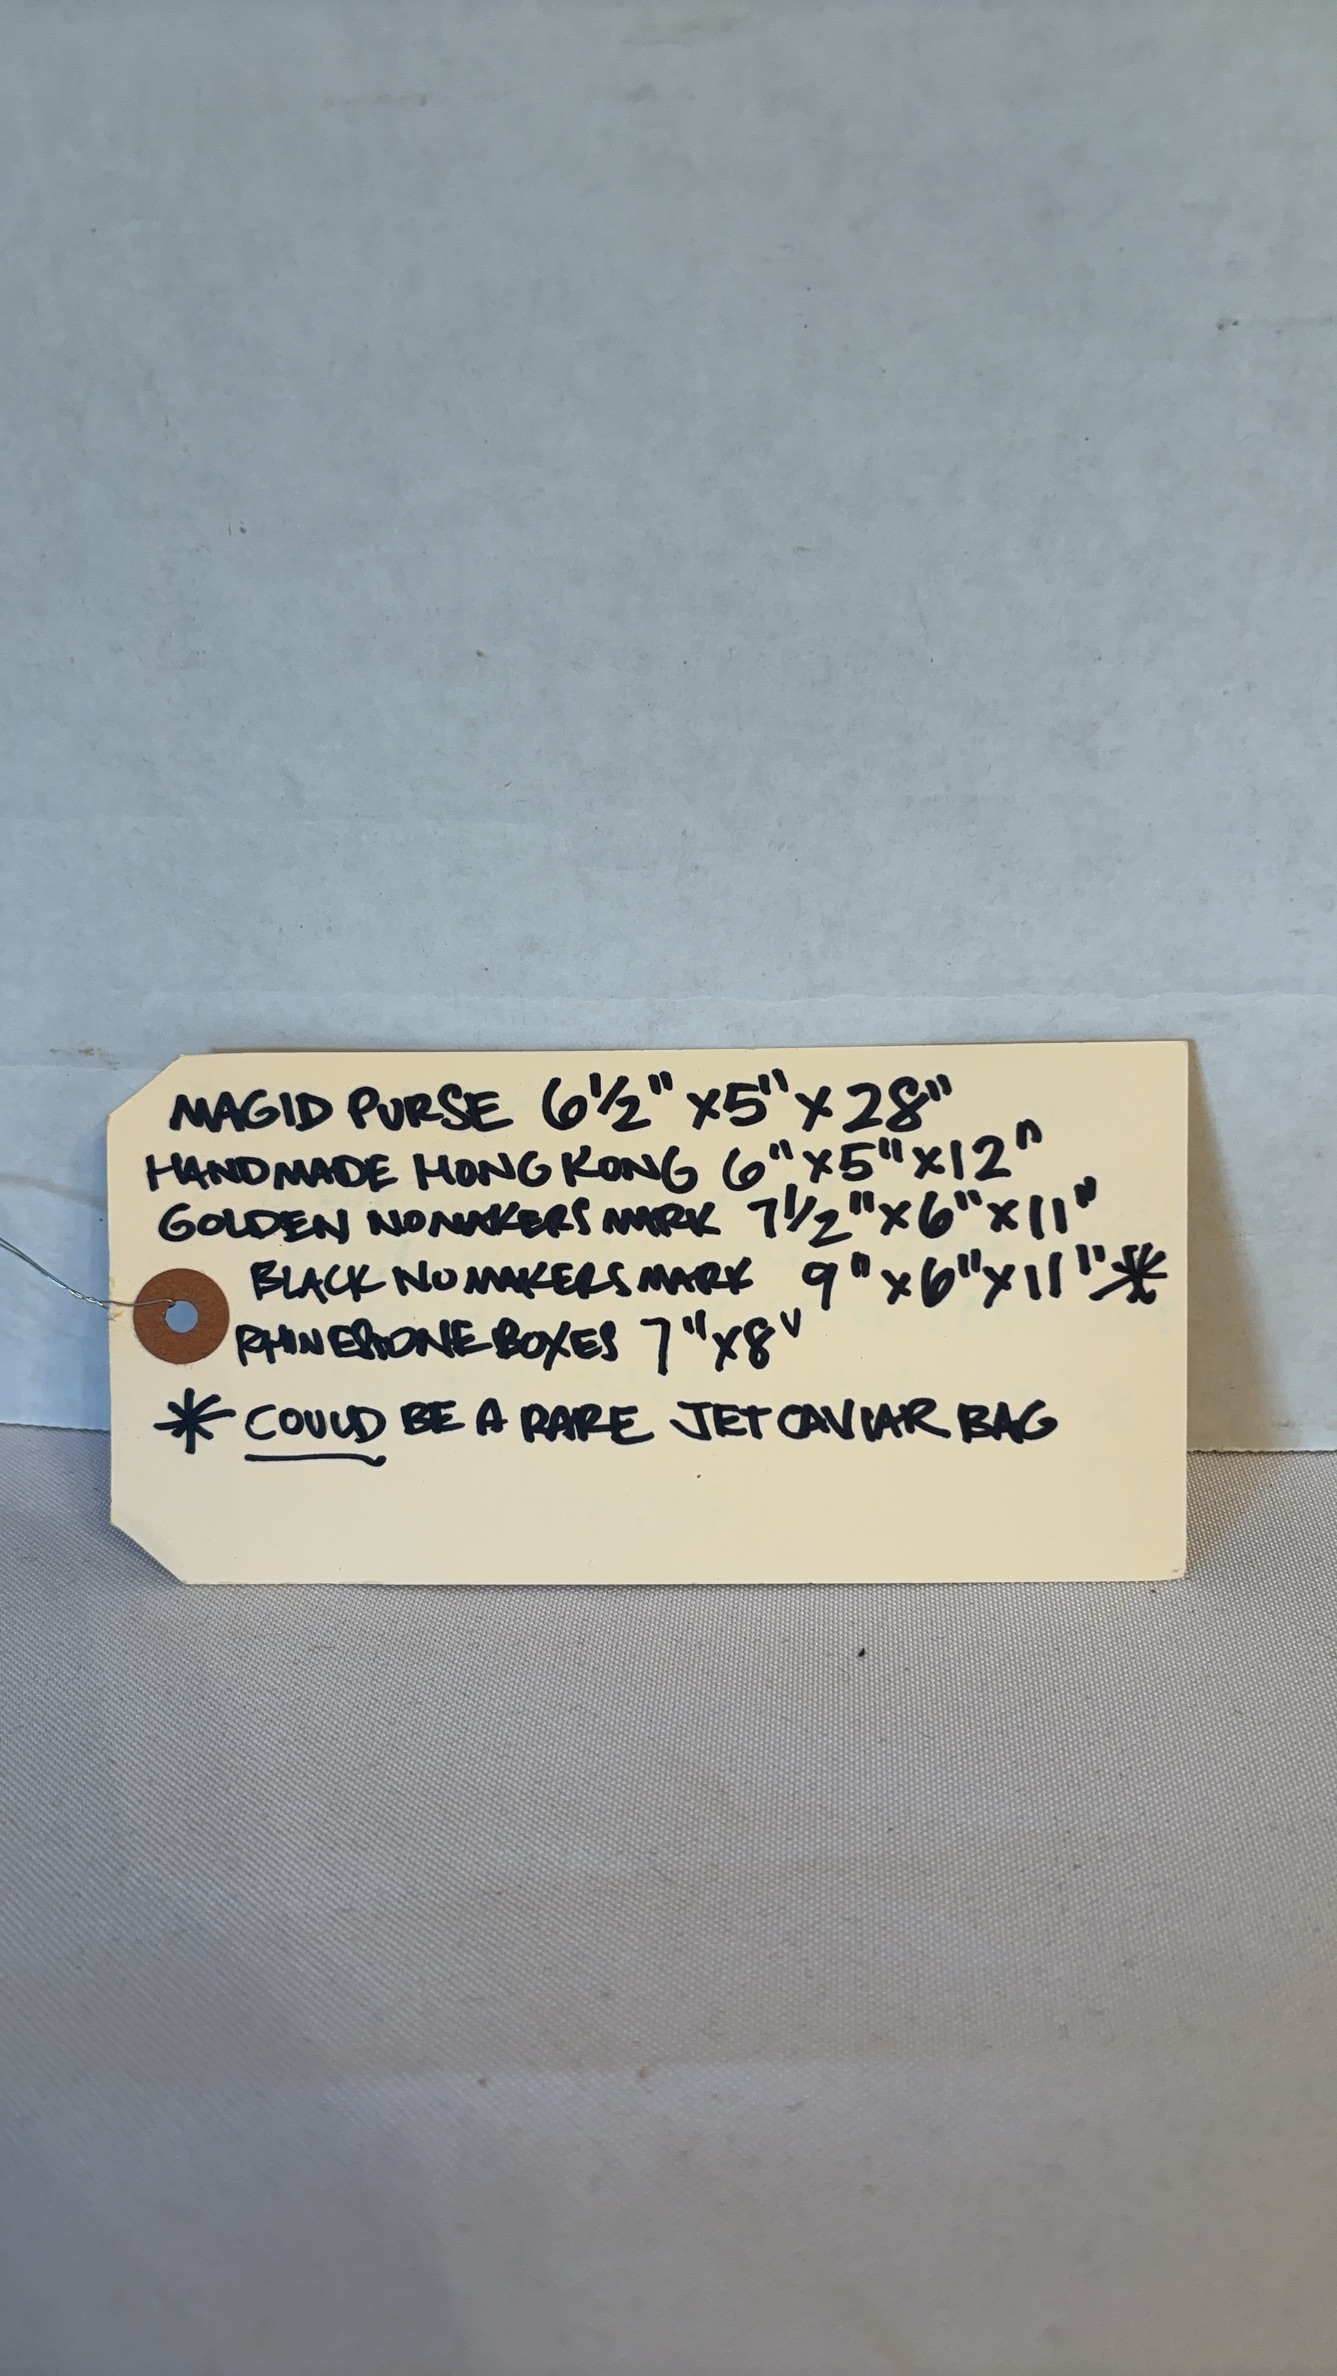 MAGID PURSE 6 1/2" x 5" x 28"
HANDMADE HONG KONG 6" x 5" x 12"
GOLDEN NO MAKERS MARK 7 1/2" x 6" x 11"
BLACK NO MAKERS MARK 9" x 6" x 11" *
RHINESTONE BOXES 7" x 8"
* COULD BE A RARE JET CAVIAR BAG